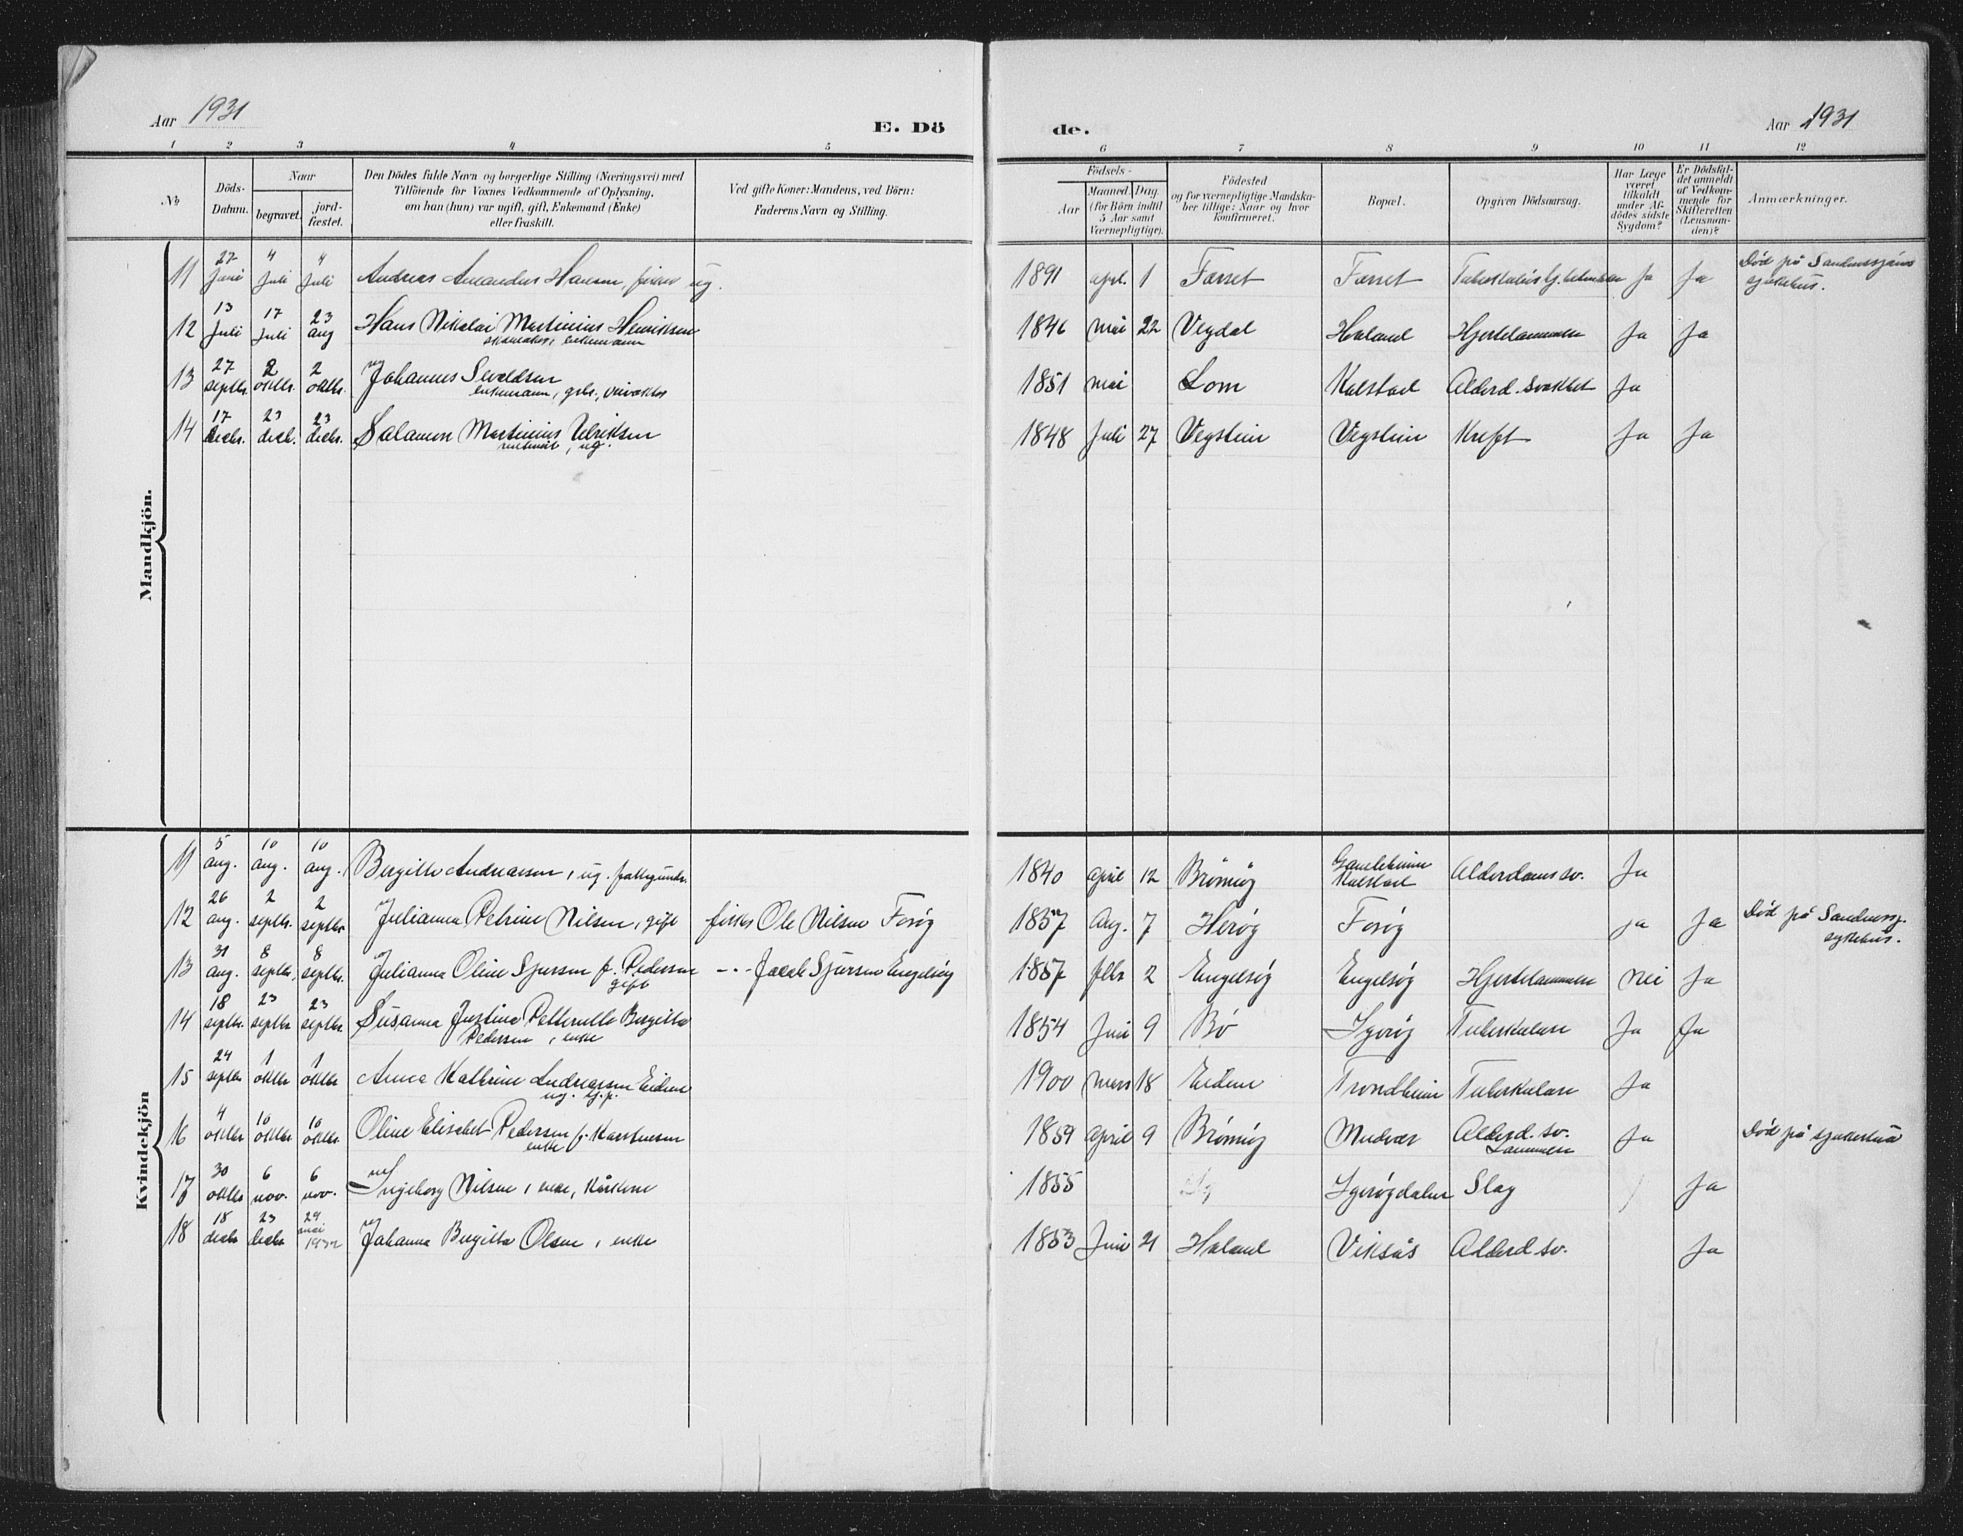 Aar 1931
E. Dö
de.
Aar 1931
1 2 3 4 5 6 7 8 9 10 11 12
No
Döds-
Datum.
Naar
begravet.
jord-
fæstet.
Den Dödes fulde Navn og borgerlige Stilling (Næringsvei) med
Tilföiende for Voxnes Vedkommende af Oplysning,
om han (hun) var ugift, gift, Enkemand (Enke)
eller fraskilt.
Ved gifte Koner: Mandens, ved Börn:
Faderens Navn og Stilling.
Födsels-
Aar
Maaned.
Dag.
(for Börn indtil
5 Aar samt
Værnepligtige).
Födested
og for værnepligtige Mandska-
ber tillige: Naar og hvor
konfirmeret.
Bopæl.
Opgiven Dödsaarsag.
Har Læge
været
tilkaldt
under Af-
dödes sidste
Sygdom?
Er Dödsfal-
det anmeldt
af Vedkom-
mende for
Skifteretten
(Lensman-
den)?
Anmærkninger.
Mandkjön.
11 27 Juni 4 Juli 4 Juli Andreas Amandus Hansen, fisker ug. 1891 apr. 1 Forset Forset Ja Ja Död på Sandnessjøen
sykehus.
12 13 Juli 17 Juli 23 aug Hans Nikolai Martinius Henriksen 1846 mai 22 Vegdal Haland Hjertelammelse Ja Ja
enkemann
13 27 septbr. 2 oktbr. 2 oktbr. Johannes Sivaldsen 1851 mai Lom Kalstad Alderd. svakhet Ja
enkemann, gbr.,
14 17 decbr. 23 decb. 23 decbr. Salamon Martinius Ulriksen 1848 Juli 27 Vegstein Vegstein Kreft Ja Ja
ug.
Kvindekjön
11 5 aug. 10 aug. 10 aug. Birgitte Andreassen, ug. 1840 april 12 Brönnøy Kalstad Alderdoms sv. Ja
12 26 aug. 2 septbr. 2 septbr Julianna Petrine Nilsen, gift fisker Ole Nilsen Forøy 1857 Aug. 7 Herøy Forøy Ja Ja Död på Sandnessj.
sykehus.
13 31 aug. 8 septbr. 8 septbr. Julianna Oline Sjursen f. Pedersen - - - Jacob Sjursen Engelsøy 1857 febr 2 Engelsøy Engelsøy Hjertelammelse Nei Ja
gift
14 18 septbr. 23 septbr 23 septbr Susanna Justine Petternelle Birgitte 1854 Juni 9 Bø Tuberkulose Ja Ja
Pedersen, enke
15 24 septbr 1 oktbr 1 oktbr Anna Kathrine Andreassen Eidem 1900 mars 18 Eidem Trondheim Tuberkulose Ja
ug.
16 4 oktbr 10 oktbr 10 oktbr Oline Elisabet Pedersen f. Karstensen 1859 april 9 Brönnøy Mudvær Alderd. sv. Ja Död på sykestua
enke Lammelse
17 30 oktbr 6 nov. 6 nov. Ingeborg Nilsen, enke, 1855 Slag Ja
18 18 decbr 23 decbr 29 mai 1932 Johanna Birgitte Olsen, enke 1853 Juni 21 Haland Viksås Alderd sv. Ja